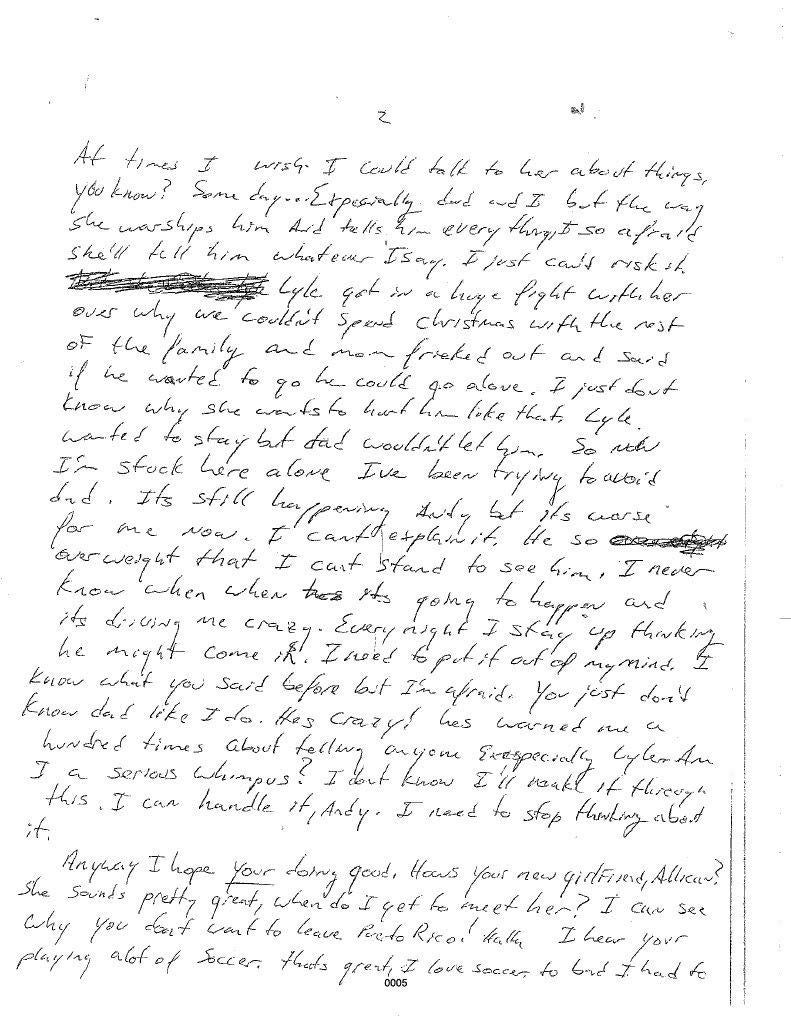 2
At times I wish I could talk to her about things,
you know? Some day.... Expecially dad and I but the way
she warships him And tells him every thing, I so afraid
she'll tell him whatever I say. I just can't risk it.
Lyle got in a huge fight with her
over why we couldn't spend christmas with the rest
of the family and mom frieked out and said
if he wanted to go he could go alone. I just dont
know why she wants to hurt him like that. Lyle
wanted to stay but dad wouldn't let him. So now
I'm stuck here alone I've been trying to avoid
dad. Its still happening Andy but its worse
for me now. I can't explain it. He so
overweight that I can't stand to see him. I never
know when when its going to happen and
its driving me crazy. Every night I stay up thinking
he might come in. I need to put it out of my mind. I
know what you said before but I'm afraid. You just don't
know dad like I do. Hes crazy! hes warned me a
hundred times about telling anyone Expecially Lyle. Am
I a serious whimpus? I dont know I'll make it through
this. I can handle it, Andy. I need to stop thinking about
it.
Anyway I hope your doing good. Hows your new girlfriend,
She sounds pretty great, when do I get to meet her? I can see
why you don't want to leave Pueto Rico! Haha I hear your
playing alot of soccer. thats great, I love soccer, to bad I had to
0005